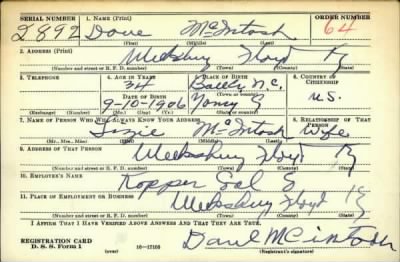 SERIAL NUMBER 1. NAME (Print) ORDER NUMBER
2892 Dave McIntosh 64
(First) (Middle) (Last)
2. ADDRESS (Print)
Weeksbury Floyd Ky
(Number and street or R. F. D. number) (Town) (County) (State)
3. TELEPHONE 4. AGE IN YEARS 5. PLACE OF BIRTH 6. COUNTRY OF CITIZENSHIP
34
(Town or county)
DATE OF BIRTH
9-10-1906 U.S.
(Exchange) (Number) (Mo.) (Day) (Yr.) (State or country)
7. NAME OF PERSON WHO WILL ALWAYS KNOW YOUR ADDRESS 8. RELATIONSHIP OF THAT PERSON
Lizzie McIntosh Wife
(Mr., Mrs., Miss) (First) (Middle) (Last)
9. ADDRESS OF THAT PERSON
Weeksbury Floyd Ky
(Number and street or R. F. D. number) (Town) (County) (State)
10. EMPLOYER'S NAME
11. PLACE OF EMPLOYMENT OR BUSINESS
Weeksbury Floyd Ky
(Number and street or R. F. D. number) (Town) (County) (State)
I AFFIRM THAT I HAVE VERIFIED ABOVE ANSWERS AND THAT THEY ARE TRUE.
REGISTRATION CARD
D. S. S. Form 1 (over) 16-17105 (Registrant's signature)